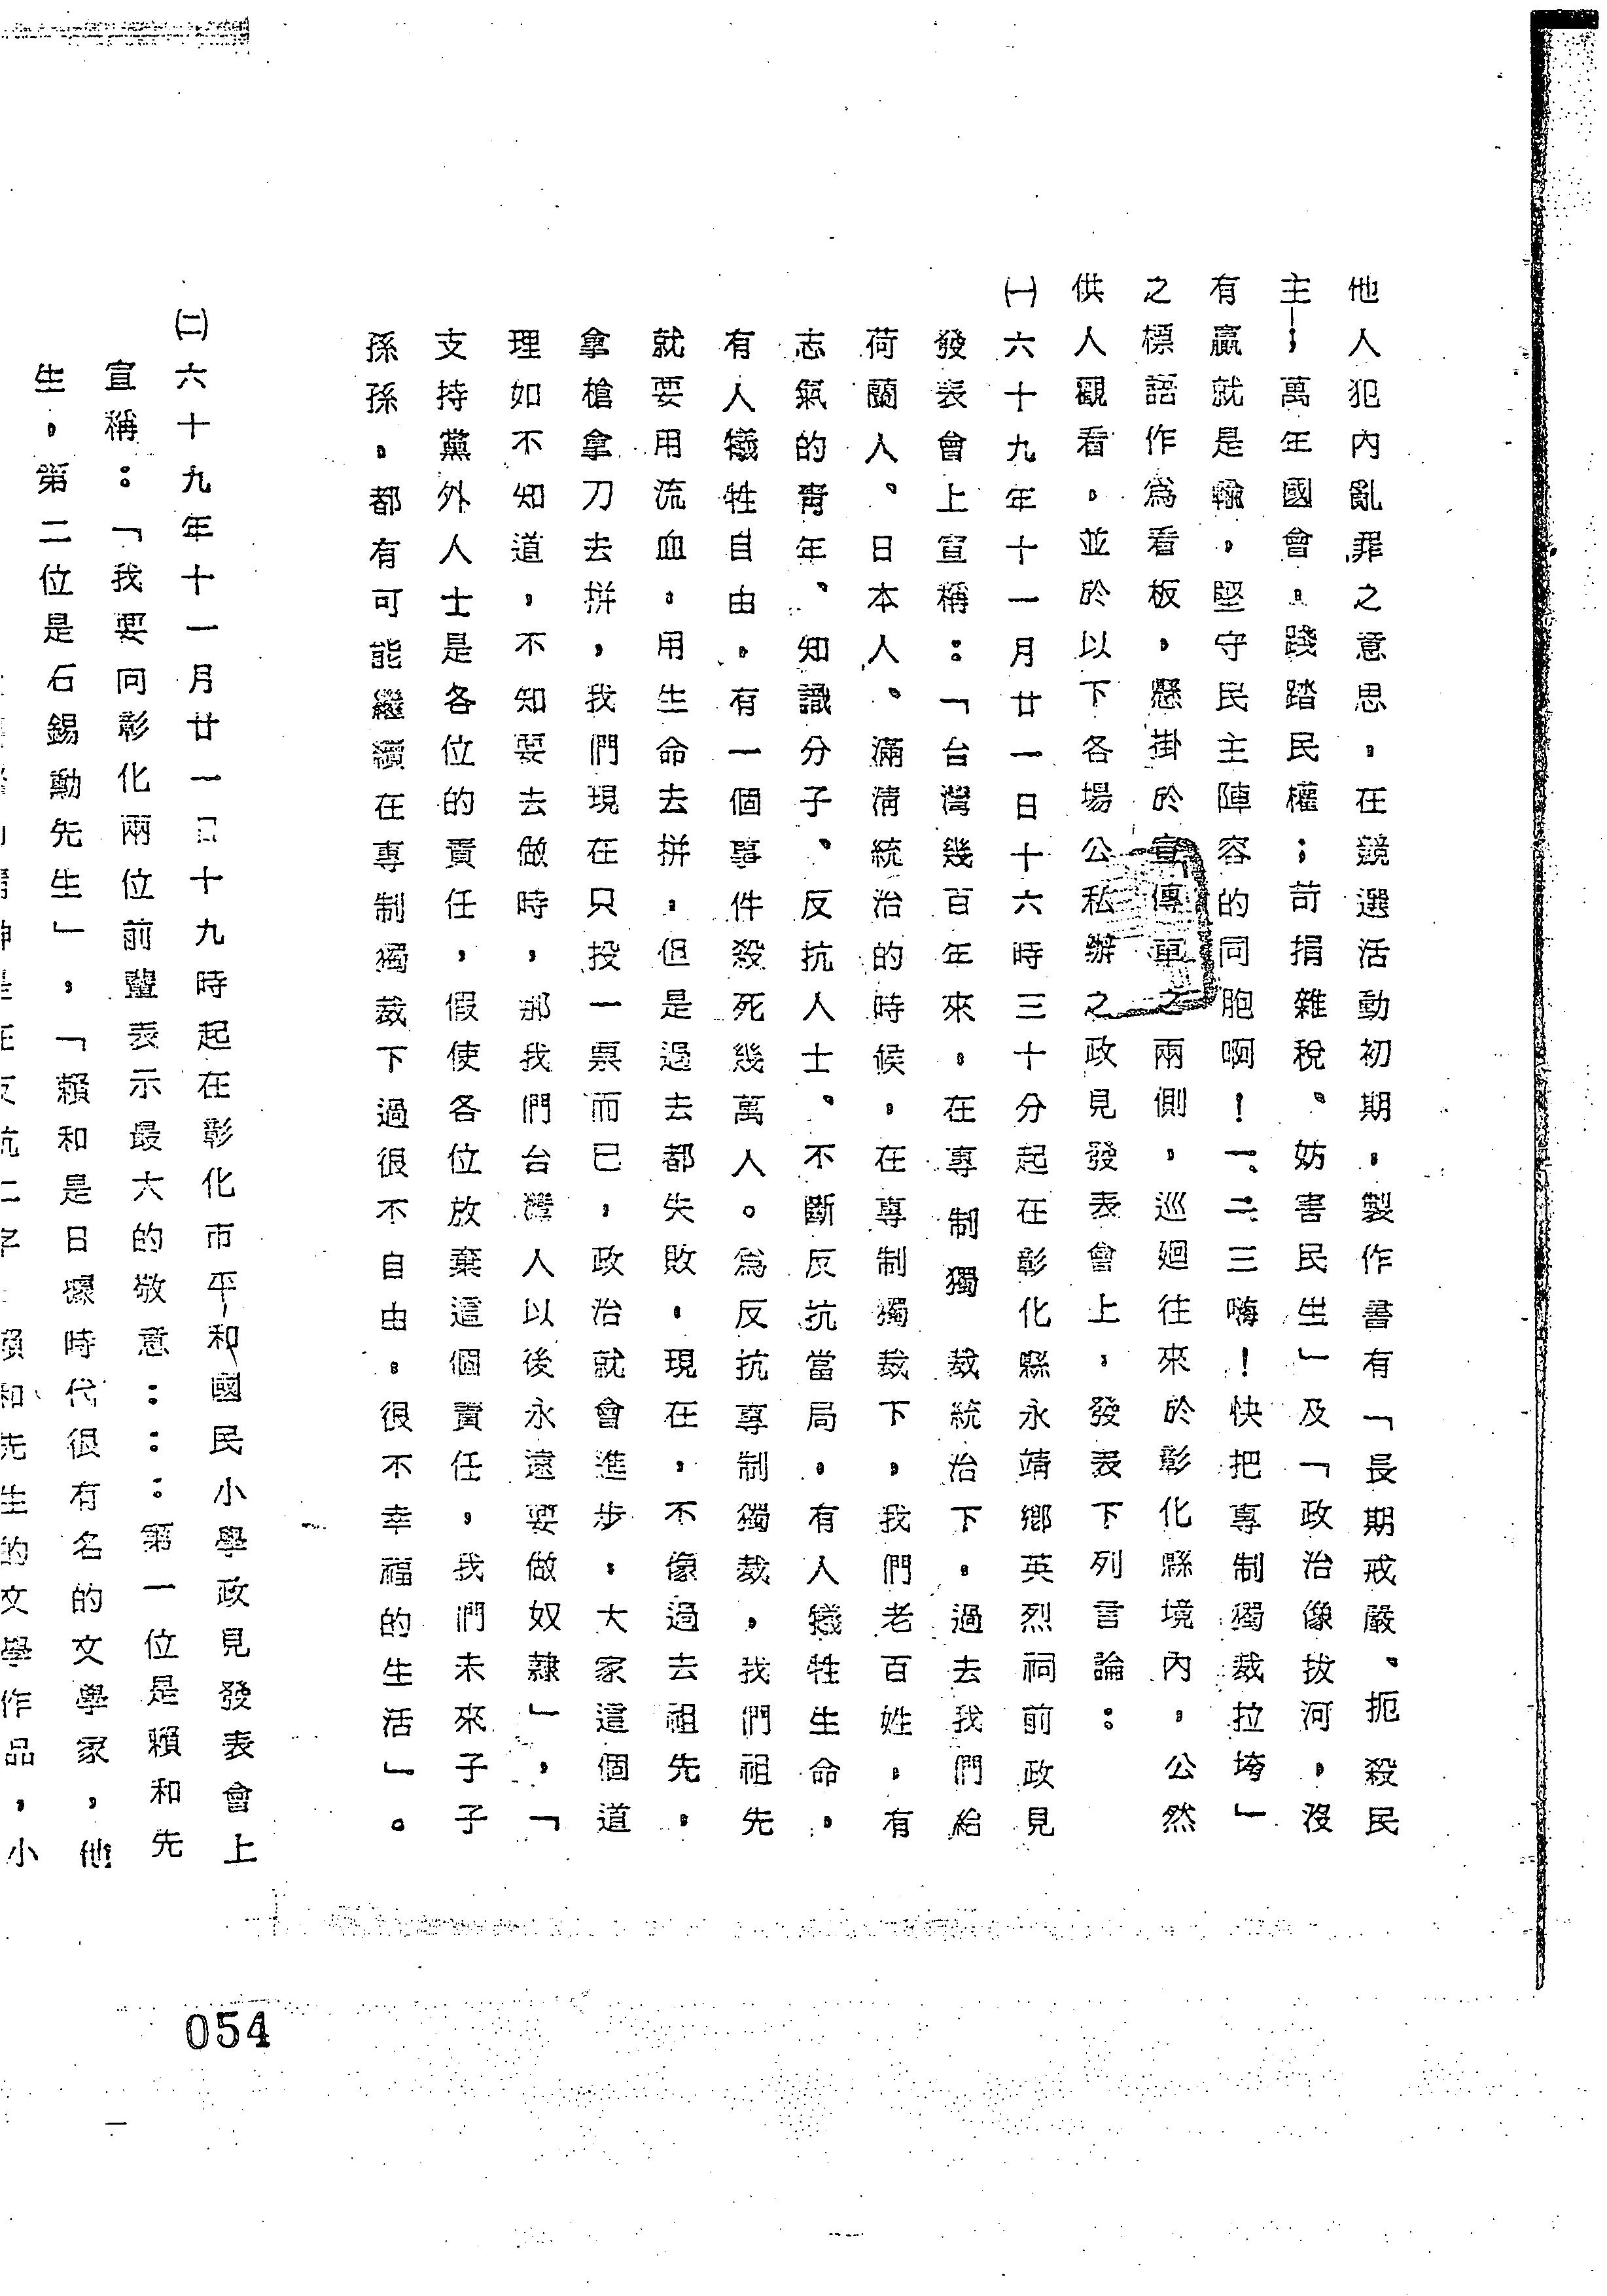 他人犯內亂罪之意思，在競選活動初期，製作書有「長期戒嚴、扼殺民
主，萬年國會，踐踏民權；苛捐雜稅、妨害民生」及「政治像拔河，沒
有贏就是輸，堅守民主陣容的同胞啊！一、二、三嗨！快把專制獨裁拉垮」
之標語作為看板，懸掛於宣傳車之兩側，巡廻往來於彰化縣境內，公然
供人觀看，並於以下各場公私辦之政見發表會上，發表下列言論：
㈠六十九年十一月廿一日十六時三十分起在彰化縣永靖鄉英烈祠前政見
發表會上宣稱：「台灣幾百年來，在專制獨裁統治下，過去我們給
荷蘭人、日本人、滿清統治的時候，在專制獨裁下，我們老百姓，有
志氣的青年、知識分子、反抗人士、不斷反抗當局，有人犧牲生命，
有人犧牲自由，有一個事件殺死幾萬人。為反抗專制獨裁，我們祖先
就要用流血，用生命去拼，但是過去都失敗，現在，不像過去祖先，
拿槍拿刀去拼，我們現在只投一票而已，政治就會進步，大家這個道
理如不知道，不知要去做時，那我們台灣人以後永遠要做奴隸」，「
支持黨外人士是各位的責任，假使各位放棄這個責任，我們未來子子
孫孫，都有可能繼續在專制獨裁下過很不自由，很不幸福的生活」。
㈡六十九年十一月廿一日十九時起在彰化市平和國民小學政見發表會上
宣稱：「我要向彰化兩位前輩表示最大的敬意：：：第一位是賴和先
生，第二位是石錫勳先生」，「賴和是日據時代很有名的文學家，他
精神是在反抗二字 賴和先生的文學作品，小
054